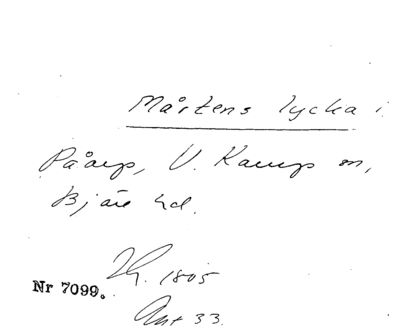 Mårtens lycka i
Påarp, V. Karup sn,
Bjäre hd.
Nr 7099. 1805
Ant 33.